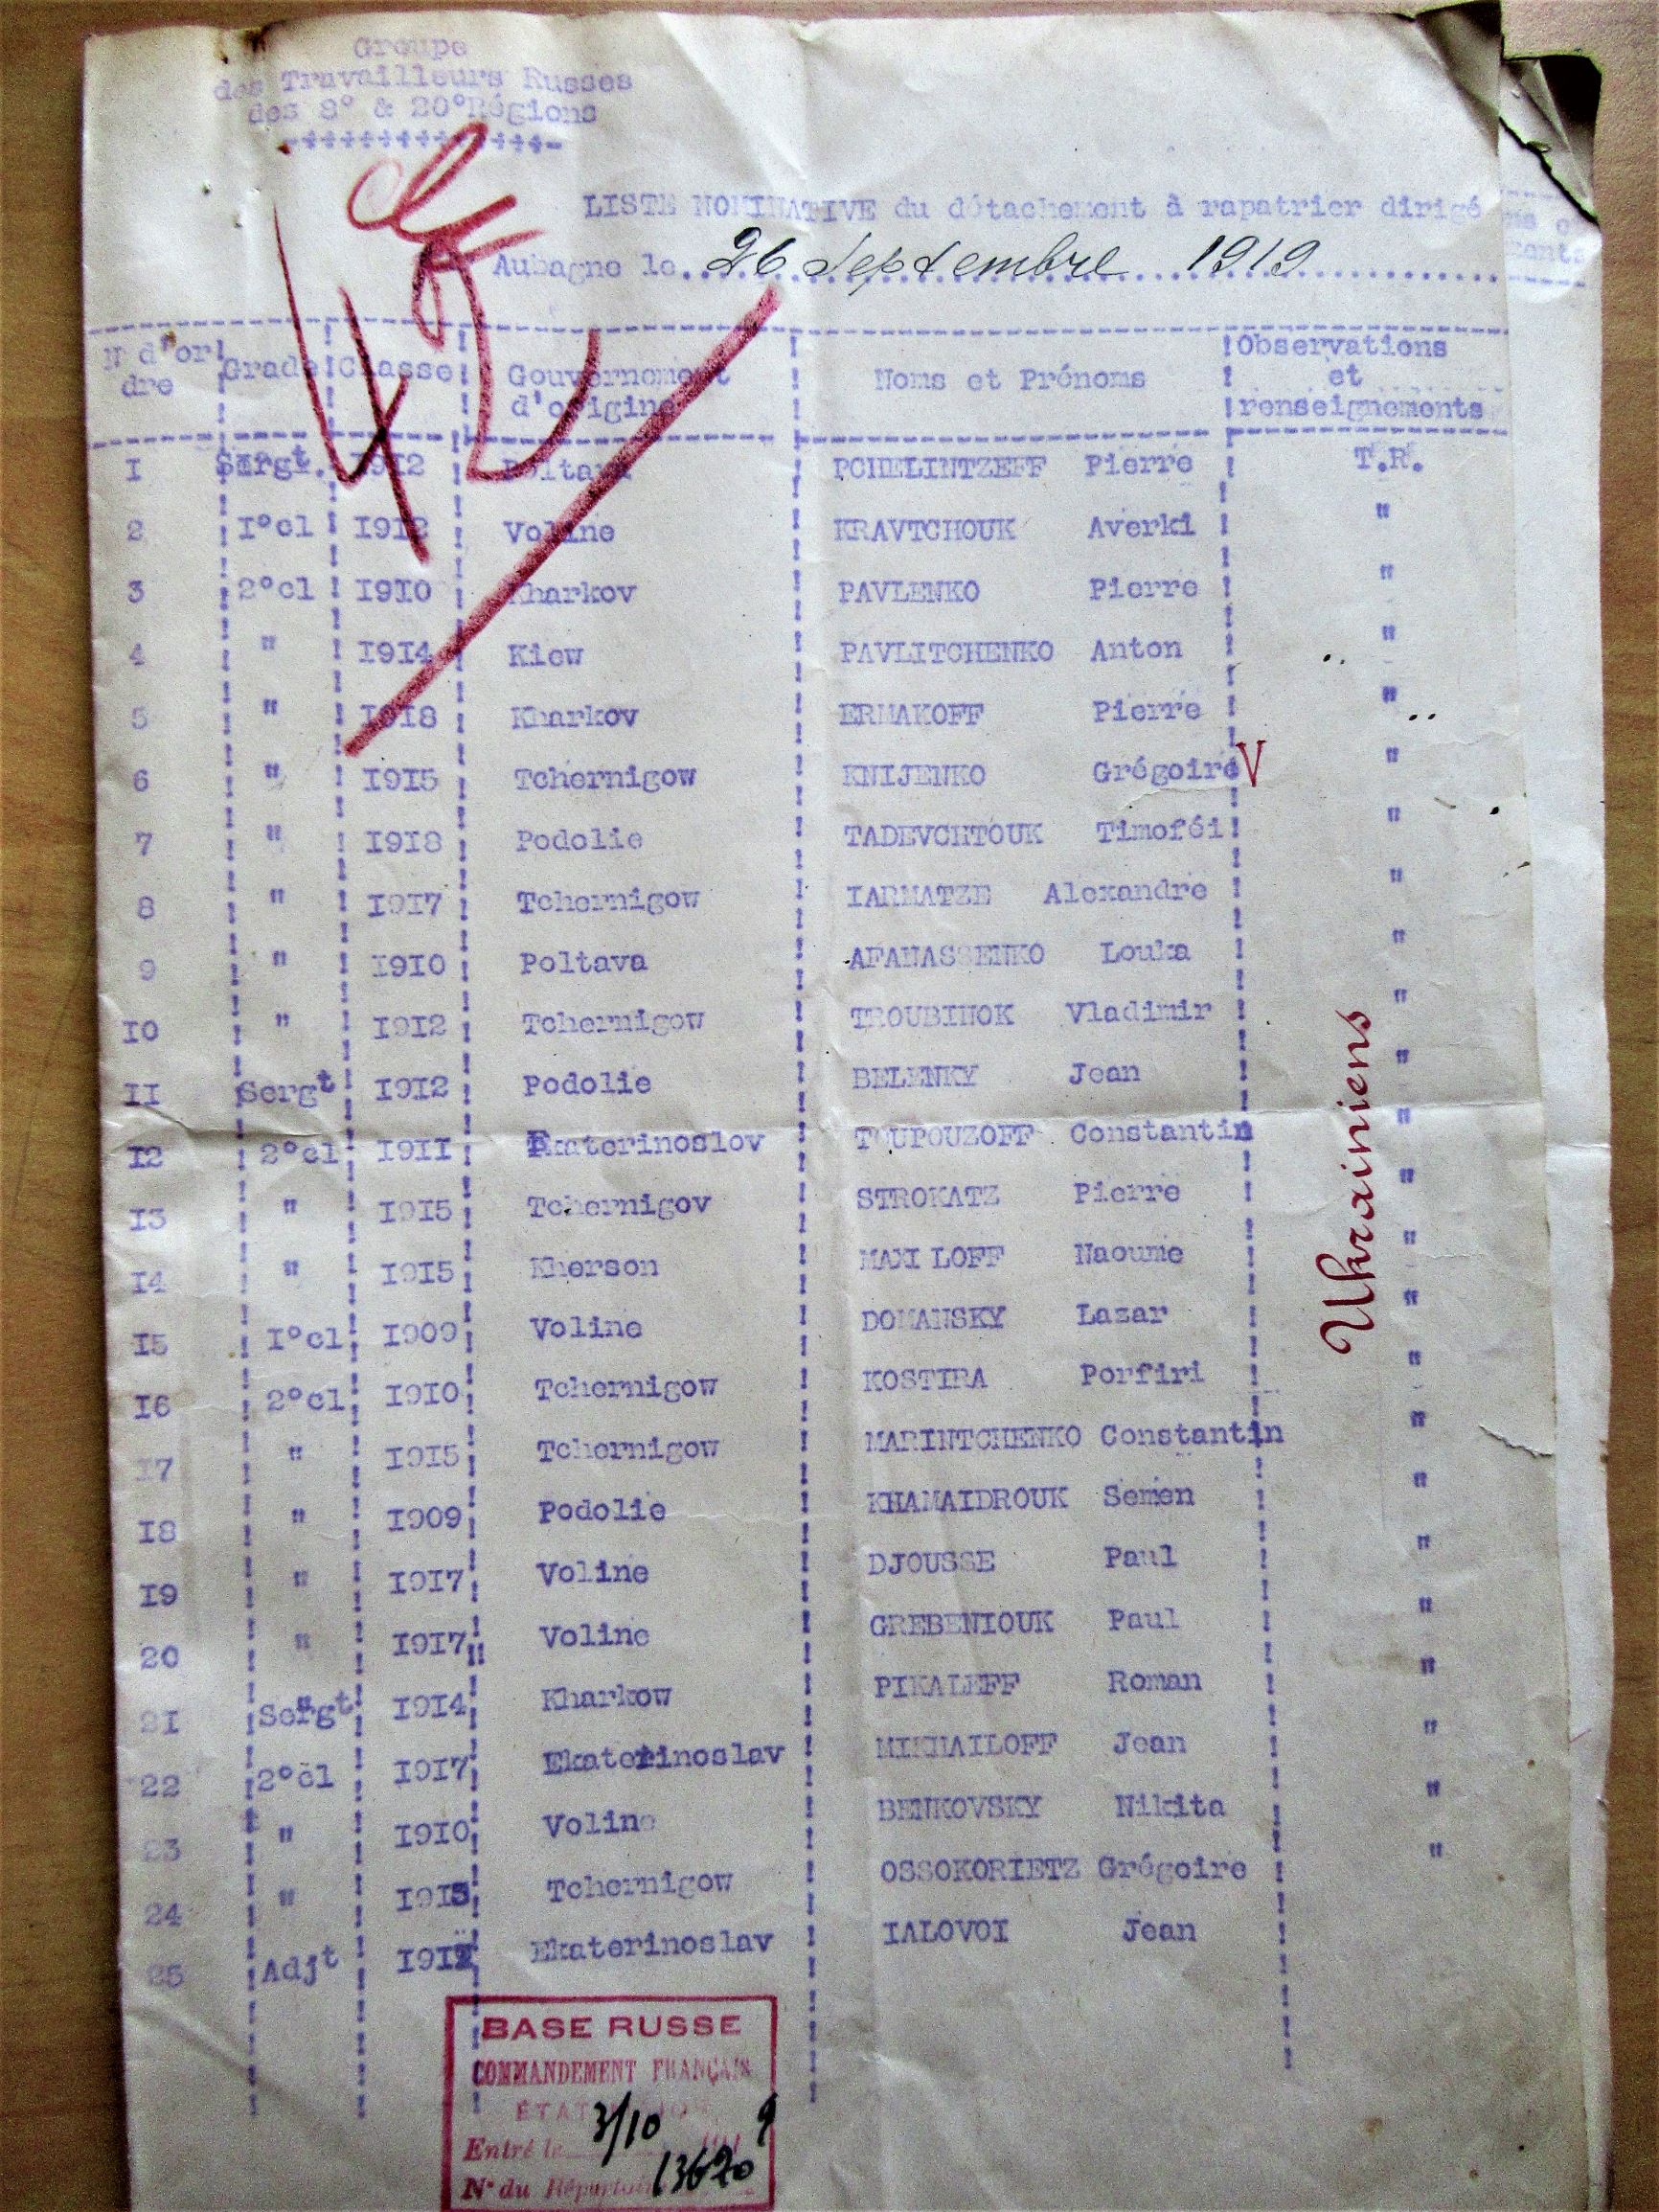 Groupe
des Travailleurs Russes
des 8° & 20°Régions
LISTE NOMINATIVE du détachement à rapatrier dirigé
Aubagne le 26 Septembre 1919
42
N d'or dre ! Grade ! Classe ! Gouvernement d'origine ! Noms et Prénoms ! Observations et renseignements
I Sergt. 1912 Poltava PCHELINTZEFF Pierre T.R.
2 I°cl I912 Voline KRAVTCHOUK Averki "
3 2°cl I9I0 Kharkov PAVLENKO Pierre "
4 " I9I4 Kiew PAVLITCHENKO Anton "
5 " I9I8 Kharkov ERMAKOFF Pierre "
6 " I9I5 Tchernigow KNIJENKO Grégoire V "
7 " I9I8 Podolie TADEVCHTOUK Timoféi "
8 " I9I7 Tchernigow IARMATZE Alexandre "
9 " I9I0 Poltava AFANASSENKO Louka "
I0 " I9I2 Tchernigow TROUBINOK Vladimir "
II Sergt I9I2 Podolie BELENKY Jean "
I2 2°cl I9II Ekaterinoslov Constantin "
I3 " I9I5 Tchernigov STROKATZ Pierre "
I4 " I9I5 Kherson MAXI LOFF Naoume "
I5 I°cl I909 Voline DOMANSKY Lazar "
I6 2°cl I9I0 Tchernigow KOSTIRA Porfiri "
I7 " I9I5 Tchernigow MARINTCHENKO Constantin "
I8 " I909 Podolie KHAMAIDROUK Semen "
I9 " I9I7 Voline DJOUSSE Paul "
20 " I9I7 Voline GREBENIOUK Paul "
2I Sergt I9I4 Kharkow PIKALEFF Roman "
22 2°cl I9I7 Ekaterinoslav MIKHAILOFF Jean "
23 " I9I0 Voline BENKOVSKY Nikita "
24 " I9I5 Tchernigow OSSOKORIETZ Grégoire "
25 Adjt Ekaterinoslav IALOVOI Jean
Ukrainiens
BASE RUSSE
COMMANDEMENT FRANÇAIS
ÉTAT
Entré le 3/10 191 9
N° du Répertoire 13620